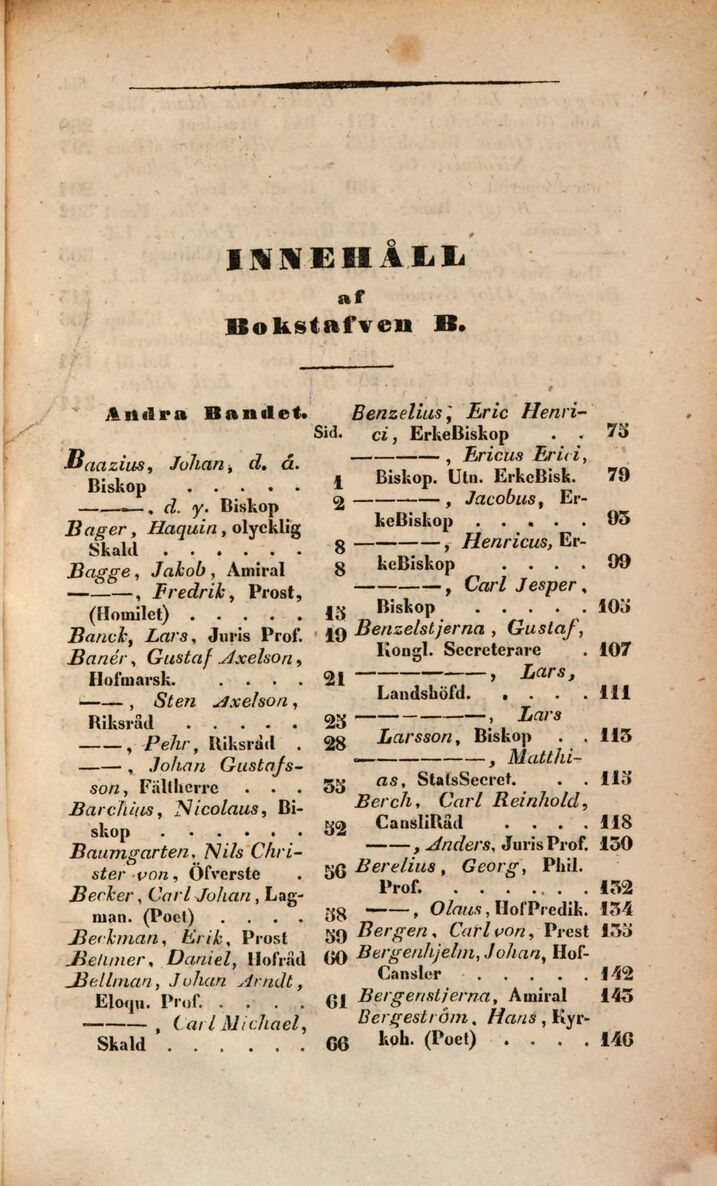 INNEHÅLL
af
Bokstafven B.
Andra Bandet.
Sid.
Baazius, Johan, d. ä.
Biskop . . . . . 1
———, d. y. Biskop 2
Bager, Haquin, olycklig
Skald . . . . . . 8
Bagge, Jakob, Amiral 8
———, Fredrik, Prost,
(Homilet) . . . . . 15
Banck, Lars, Juris Prof. 19
Banér, Gustaf Axelson,
Hofmarsk. . . . . 21
———, Sten Axelson,
Riksråd . . . . . 25
———, Pehr, Riksråd . 28
———, Johan Gustafs-
son, Fältherre . . . 35
Barchius, Nicolaus, Bi-
skop . . . . . . 52
Baumgarten, Nils Chri-
ster von, Öfverste . 56
Becker, Carl Johan, Lag-
man. (Poet) . . . . 58
Beckman, Erik, Prost 59
Behmer, Daniel, Hofråd 60
Bellman, Johan Arndt,
Eloqu. Prof. . . . . 61
———, Carl Michael,
Skald . . . . . . 66
Benzelius, Eric Henri-
ci, ErkeBiskop . . 75
————, Ericus Erici,
Biskop. Utn. ErkeBisk. 79
————, Jacobus, Er-
keBiskop . . . . . 95
————, Henricus, Er-
keBiskop . . . . 99
————, Carl Jesper,
Biskop . . . . . 105
Benzelstjerna, Gustaf,
Kongl. Secreterare . 107
—————, Lars,
Landshöfd. . . . . 111
—————, Lars
Larsson, Biskop . . 113
—————, Matthi-
as, StatsSecret. . . 115
Berch, Carl Reinhold,
CansliRåd . . . . 118
———, Anders, Juris Prof. 130
Berelius, Georg, Phil.
Prof. . . . . . . 132
———, Olaus, HofPredik. 134
Bergen, Carl von, Prest 135
Bergenhjelm, Johan, Hof-
Cansler . . . . . 142
Bergenstjerna, Amiral 145
Bergeström, Hans, Kyr-
koh. (Poet) . . . . 146